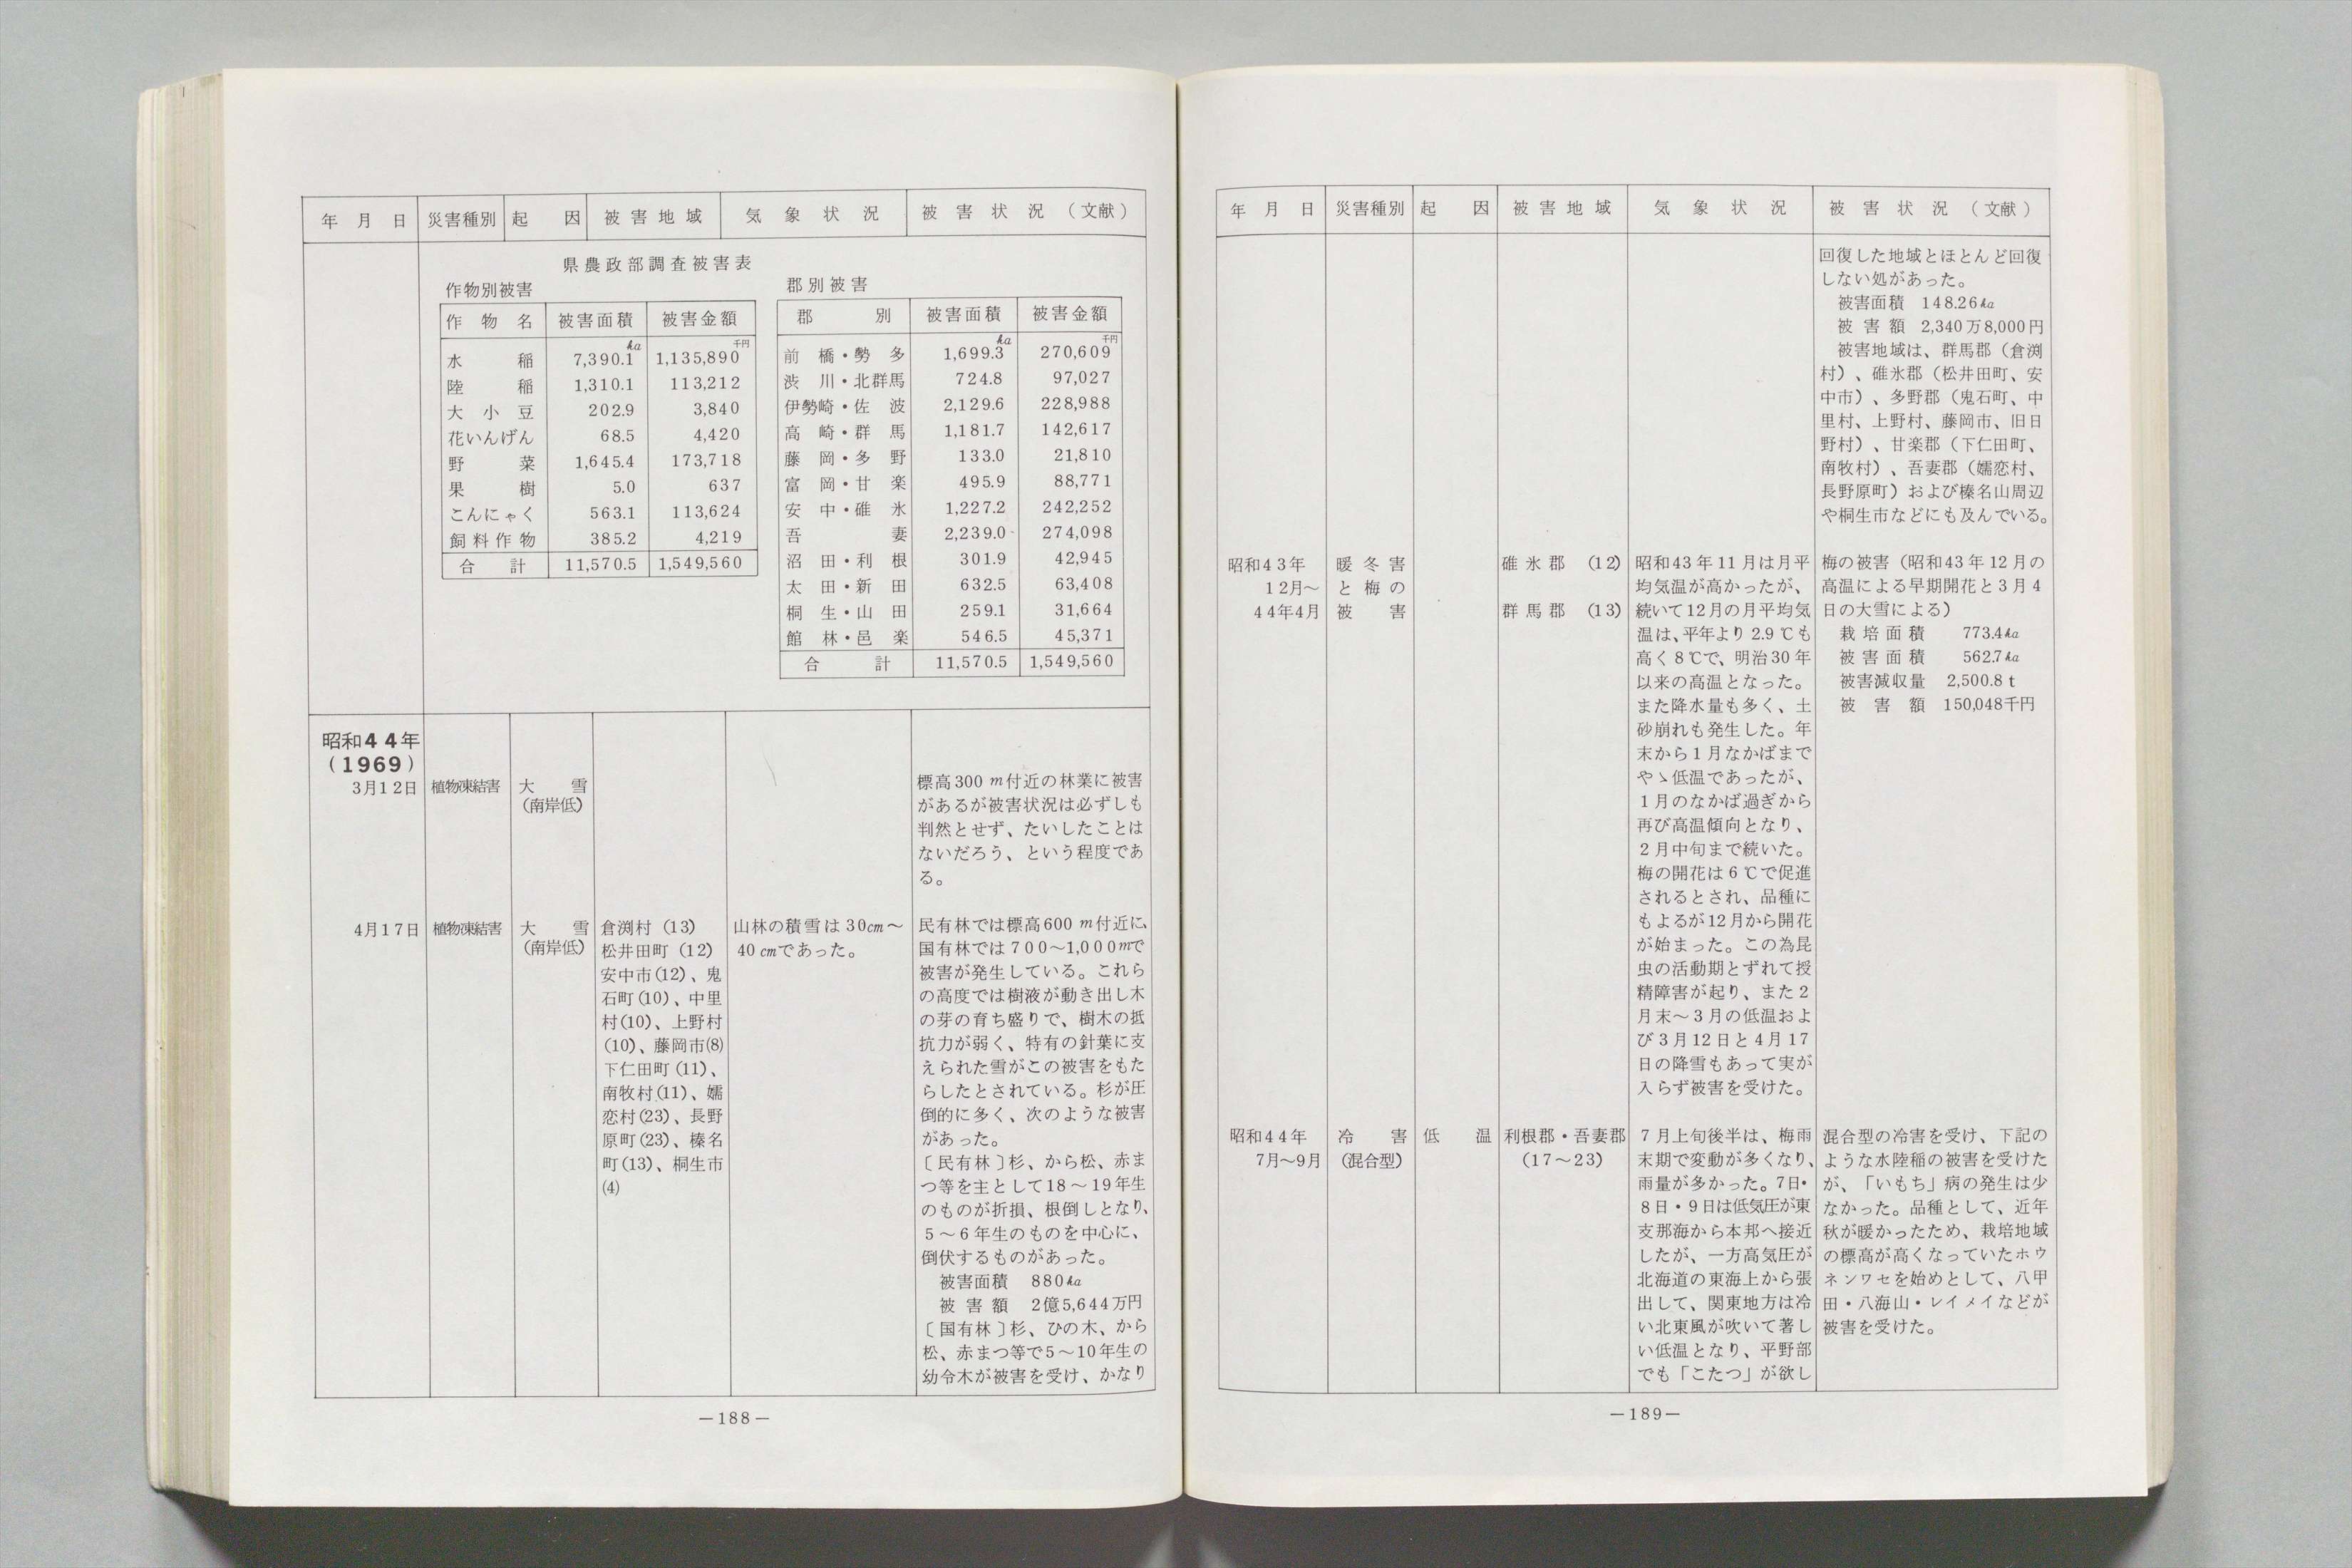 年月日 災害種別 起因 被害地域 気象状況 被害状況（文献）
県農政部調査被害表
作物別被害
作物名 被害面積 被害金額
ha 千円
水稲 7,390.1 1,135,890
陸稲 1,310.1 113,212
大小豆 202.9 3,840
花いんげん 68.5 4,420
野菜 1,645.4 173,718
果樹 5.0 637
こんにゃく 563.1 113,624
飼料作物 385.2 4,219
合計 11,570.5 1,549,560
郡別被害
郡別 被害面積 被害金額
ha 千円
前橋・勢多 1,699.3 270,609
渋川・北群馬 724.8 97,027
伊勢崎・佐波 2,129.6 228,988
高崎・群馬 1,181.7 142,617
藤岡・多野 133.0 21,810
富岡・甘楽 495.9 88,771
安中・碓氷 1,227.2 242,252
吾妻 2,239.0 274,098
沼田・利根 301.9 42,945
太田・新田 632.5 63,408
桐生・山田 259.1 31,664
館林・邑楽 546.5 45,371
合計 11,570.5 1,549,560
昭和44年
（1969）
3月12日
植物凍結害
大雪
（南岸低）
標高300m付近の林業に被害
があるが被害状況は必ずしも
判然とせず、たいしたことは
ないだろう、という程度であ
る。
4月17日
植物凍結害
大雪
（南岸低）
倉渕村（13）
松井田町（12）
安中市(12)、鬼
石町(10)、中里
村(10)、上野村
(10)、藤岡市(8)
下仁田町(11)、
南牧村(11)、嬬
恋村(23)、長野
原町(23)、榛名
町(13)、桐生市
(4)
山林の積雪は30cm～
40cmであった。
民有林では標高600m付近に、
国有林では700～1,000mで
被害が発生している。これら
の高度では樹液が動き出し木
の芽の育ち盛りで、樹木の抵
抗力が弱く、特有の針葉に支
えられた雪がこの被害をもた
らしたとされている。杉が圧
倒的に多く、次のような被害
があった。
〔民有林〕杉、から松、赤ま
つ等を主として18～19年生
のものが折損、根倒しとなり、
5～6年生のものを中心に、
倒伏するものがあった。
被害面積 880ha
被害額 2億5,644万円
〔国有林〕杉、ひの木、から
松、赤まつ等で5～10年生の
幼令木が被害を受け、かなり
―188―
年月日 災害種別 起因 被害地域 気象状況 被害状況（文献）
回復した地域とほとんど回復
しない処があった。
被害面積 148.26ha
被害額 2,340万8,000円
被害地域は、群馬郡（倉渕
村）、碓氷郡（松井田町、安
中市）、多野郡（鬼石町、中
里村、上野村、藤岡市、旧日
野村）、甘楽郡（下仁田町、
南牧村）、吾妻郡（嬬恋村、
長野原町）および榛名山周辺
や桐生市などにも及んでいる。
昭和43年
12月～
44年4月
暖冬害
と梅の
被害
碓氷郡（12）
群馬郡（13）
昭和43年11月は月平
均気温が高かったが、
続いて12月の月平均気
温は、平年より2.9℃も
高く8℃で、明治30年
以来の高温となった。
また降水量も多く、土
砂崩れも発生した。年
末から1月なかばまで
やゝ低温であったが、
1月のなかば過ぎから
再び高温傾向となり、
2月中旬まで続いた。
梅の開花は6℃で促進
されるとされ、品種に
もよるが12月から開花
が始まった。この為昆
虫の活動期とずれて授
精障害が起り、また2
月末～3月の低温およ
び3月12日と4月17
日の降雪もあって実が
入らず被害を受けた。
梅の被害（昭和43年12月の
高温による早期開花と3月4
日の大雪による）
栽培面積 773.4ha
被害面積 562.7ha
被害減収量 2,500.8t
被害額 150,048千円
昭和44年
7月～9月
冷害
（混合型）
低温
利根郡・吾妻郡
（17～23）
7月上旬後半は、梅雨
末期で変動が多くなり、
雨量が多かった。7日・
8日・9日は低気圧が東
支那海から本邦へ接近
したが、一方高気圧が
北海道の東海上から張
出して、関東地方は冷
い北東風が吹いて著し
い低温となり、平野部
でも「こたつ」が欲し
混合型の冷害を受け、下記の
ような水陸稲の被害を受けた
が、「いもち」病の発生は少
なかった。品種として、近年
秋が暖かったため、栽培地域
の標高が高くなっていたホウ
ネンワセを始めとして、八甲
田・八海山・レイメイなどが
被害を受けた。
―189―